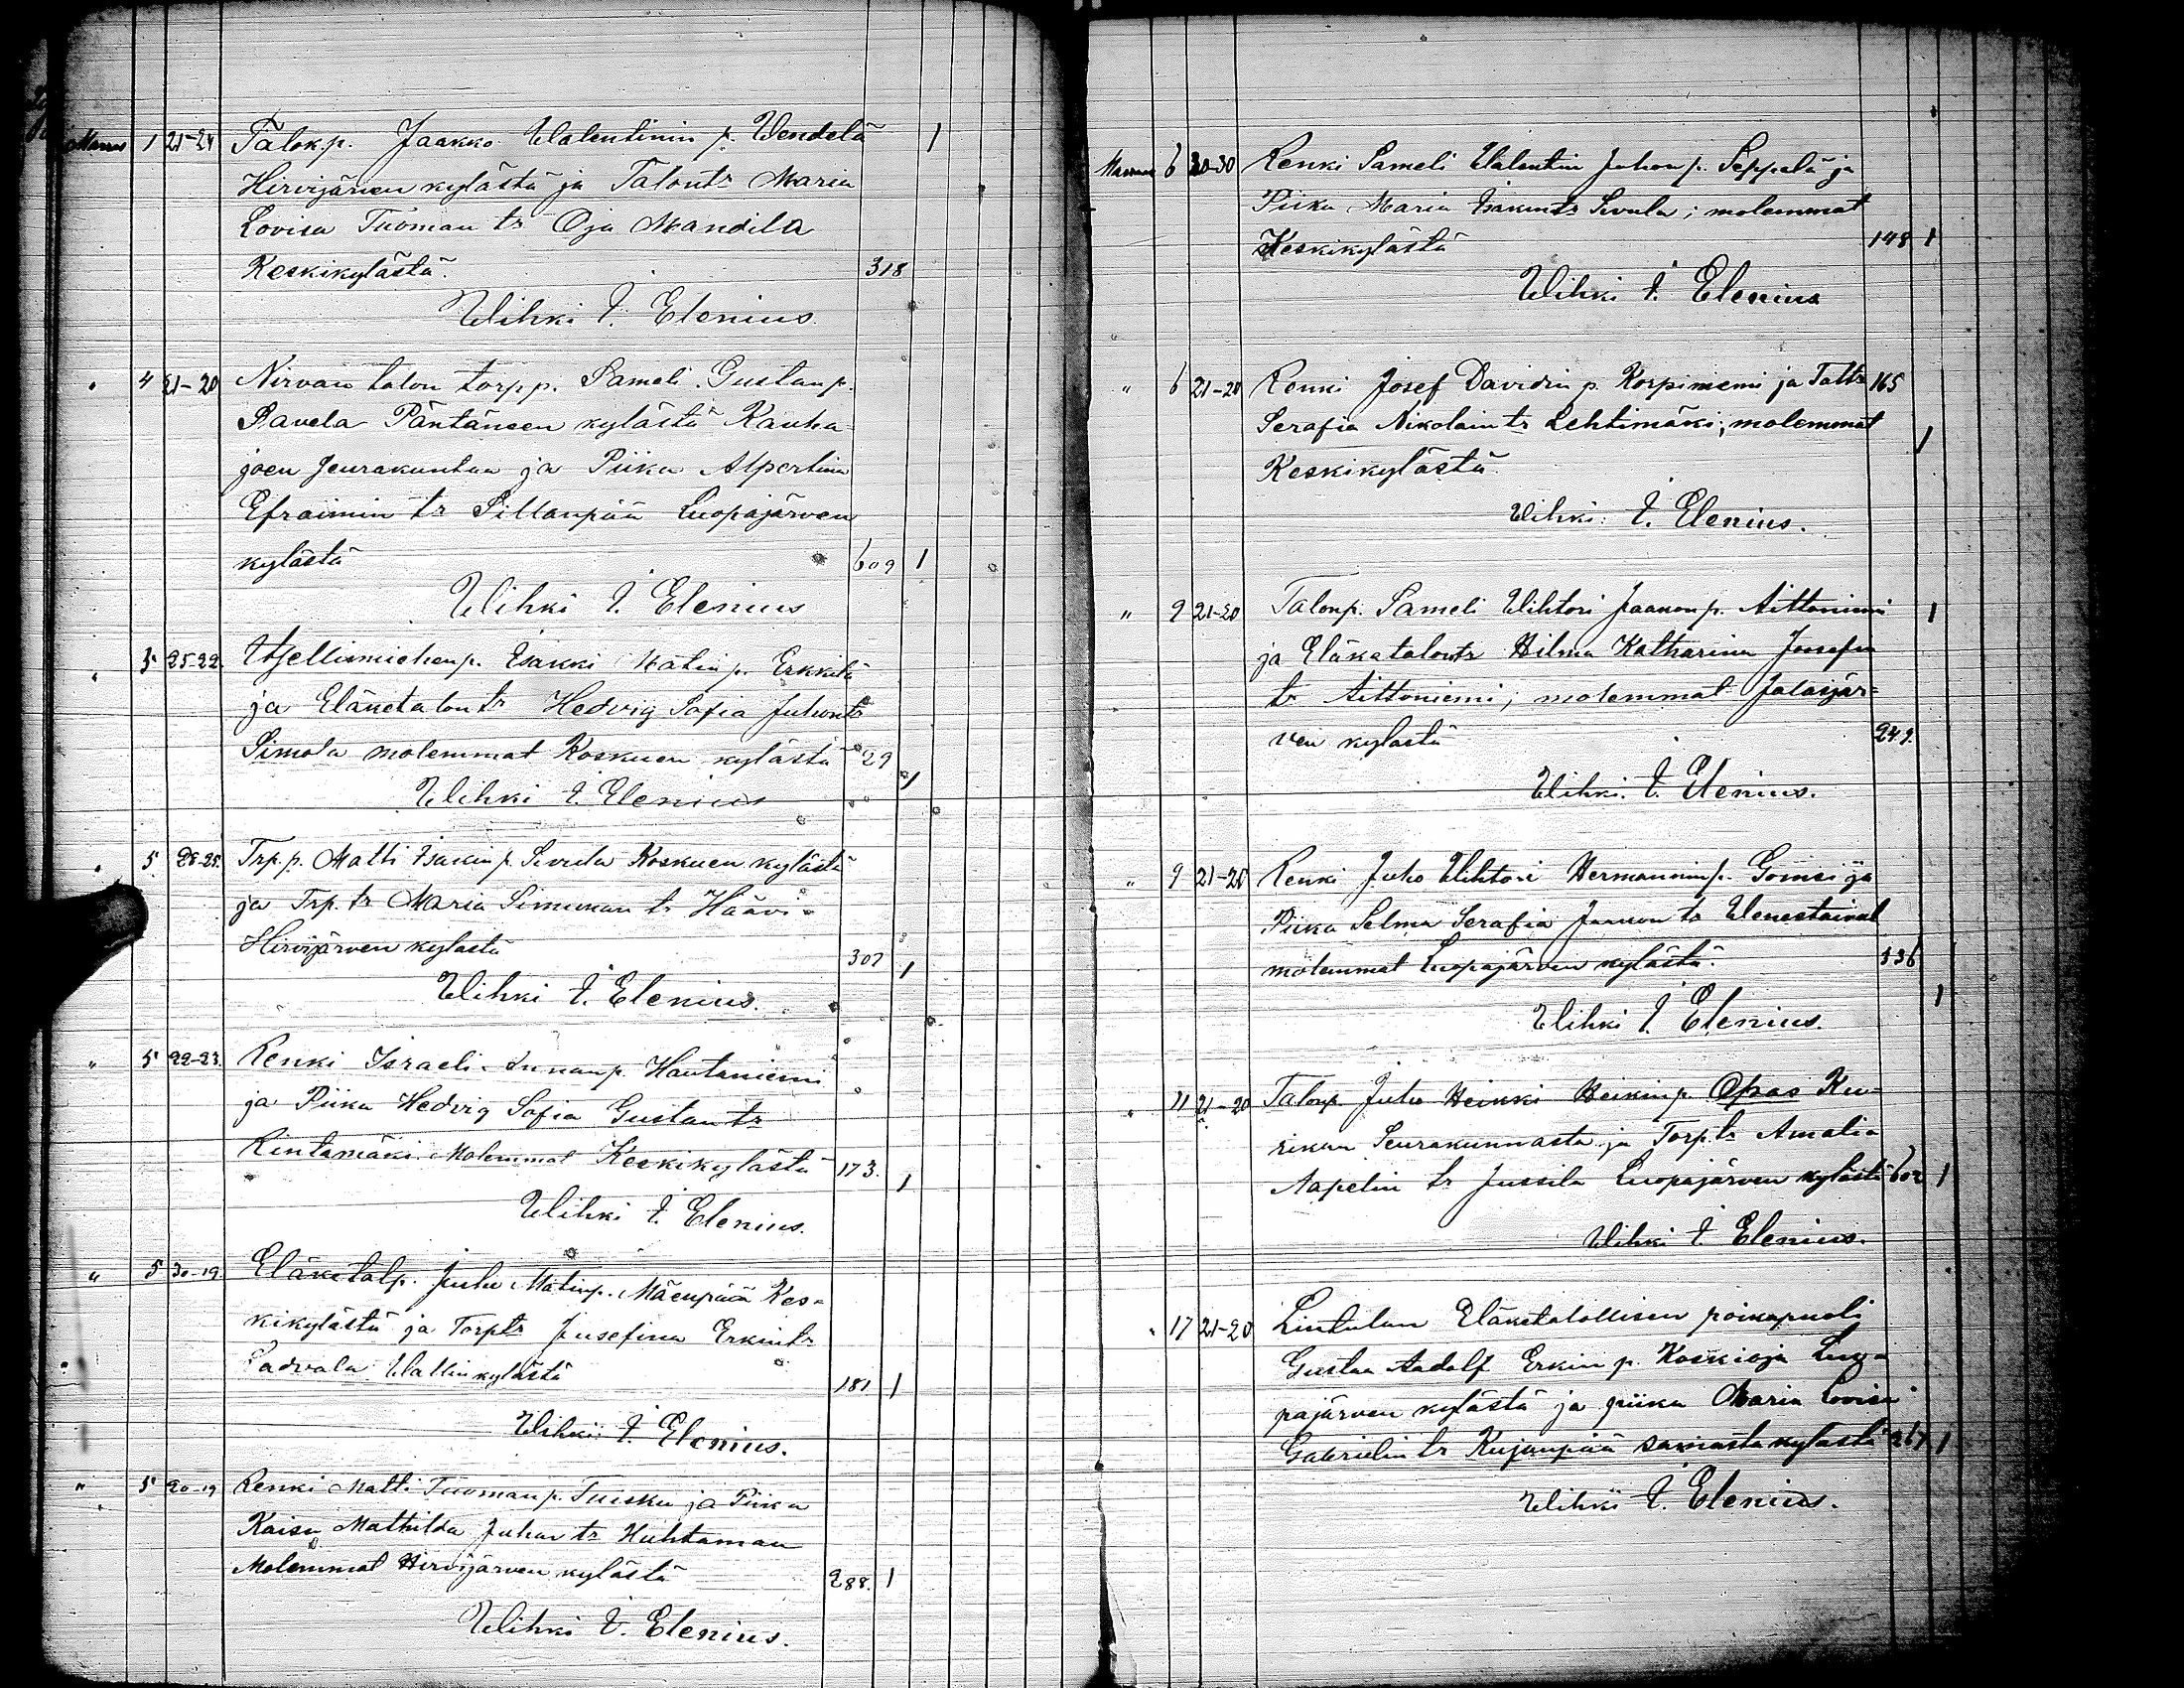 Marras 1 21-24 Talok.p. Jaakko Walentinin p. Wendelä 1
Hirvijärven kylästä ja Talontr Maria
Lovisa Tuoman tr Oja Mandila
Keskikylästä. 318
Wihki I. Elenius
" 4 21-20 Nirvan talon torp p. Sameli Gustan p.
Pavela Päntäneen kylästä Kauha-
joen seurakuntaa ja Piika Alpertina
Efraimin tr Sillanpää Luopajärven
kylästä 609 1
Wihki I. Elenius
" 5 25-22. Itsellismiehen p. Isakki Matin p. Erkkilä
ja Eläketalontr Hedvig Sofia Juhontr
Simola molemmat Koskuen kylästä 29
1
Wihki I. Elenius
" 5. 28-25. Trp. p. Matti Isakin p. Sivula Koskuen kylästä
ja Trp. tr Maria Simunan tr Häävi-
Hirvijärven kylästä 307 1
Wihki I. Elenius.
" 5 22-23. Renki Israeli p. Hautaniemi
ja Piika Hedvig Sofia Gustan tr
Rintamäki Molemmat Keskikylästä 173. 1
Wihki I. Elenius.
" 5 30-19 Eläketal p. Juho Matin p. Mäenpää Kes-
kikylästä ja Torp tr Jusefina Erkin tr
Ladvala Wallin kylästä 181 1
Wihki I. Elenius.
" 5 20-19 Renki Matti Tuoman p. Tuisku ja Piika
Kaisa Mathilda Juhan tr Huhtaman
Molemmat Hirvijärven kylästä 288. 1
Wihki I. Elenius.
Marras 6 30-30 Renki Sameli Walentin Juhon p. Seppelä ja
Piika Maria Isakin tr Sivula; molemmat
Keskikylästä 148 1
Wihki I. Elenius
" 6 21-20 Renki Josef Davidin p. Korpiniemi ja Taltr 165
Serafia Nikolain tr Lehtimäki; molemmat 1
Keskikylästä.
Wihki: I. Elenius.
" 9 21-20 Talon p. Sameli Wihtori Jaakon p. Aittoniemi 1
ja Eläketalontr Hilma Katharina Joosefin
tr Aittoniemi; molemmat Jalasjär-
ven kylästä 249.
Wihki. I. Elenius.
" 9 21-25 Renki Juho Wihtori Hermannin p. Gomsi ja
Piika Selma Serafia Jaakon tr Wenestaival
molemmat Luopajärven kylästä. 536
1
Wihki I. Elenius.
" 11 21-20 Talon p. Juho Heikki Heikin p. Opas Ku-
rikan Seurakunnasta ja Torp. tr Amalia
Aapelin tr Jussila Luopajärven kylästä 602 1
Wihki I. Elenius.
" 17 21-20 Lintulan Eläketalollisen poikapuoli
Gustaa Aadolf Erkin p. Koskioja Luo-
pajärven kylästä ja piika Maria Lovisa
Gabrielin tr Kujanpää samasta kylästä 267 1
Wihki I. Elenius.